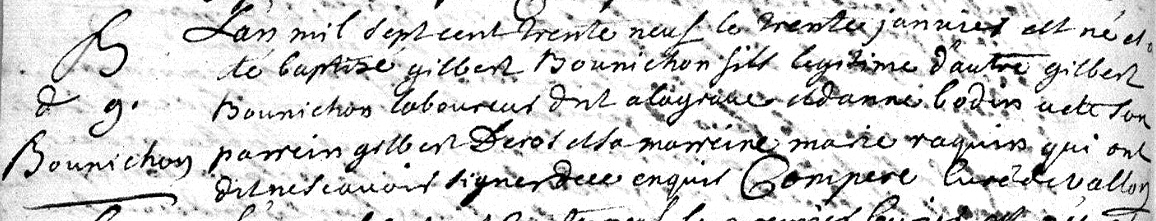 B
d g.
Bounichon
Lan mil sept cent trente neuf le trente janvier est né et
été baptise gilbert Bounichon fils legitime d'autre gilbert
Bounichon laboureur dnt a lagrave et danne bodin a ete son
parrein gilbert Deros et sa marreine marie raquin qui ont
dit ne scavoir signer de ce enquis Compere Curé de Vallon